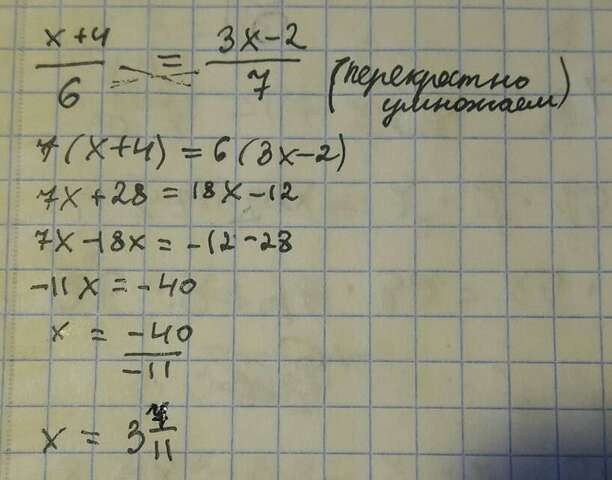 x+4/6 = 3x-2/7 (перекрестно умножаем)
7(x+4) = 6(3x-2)
7x+28 = 18x-12
7x-18x = -12-28
-11x = -40
x = -40/-11
x = 3 7/11